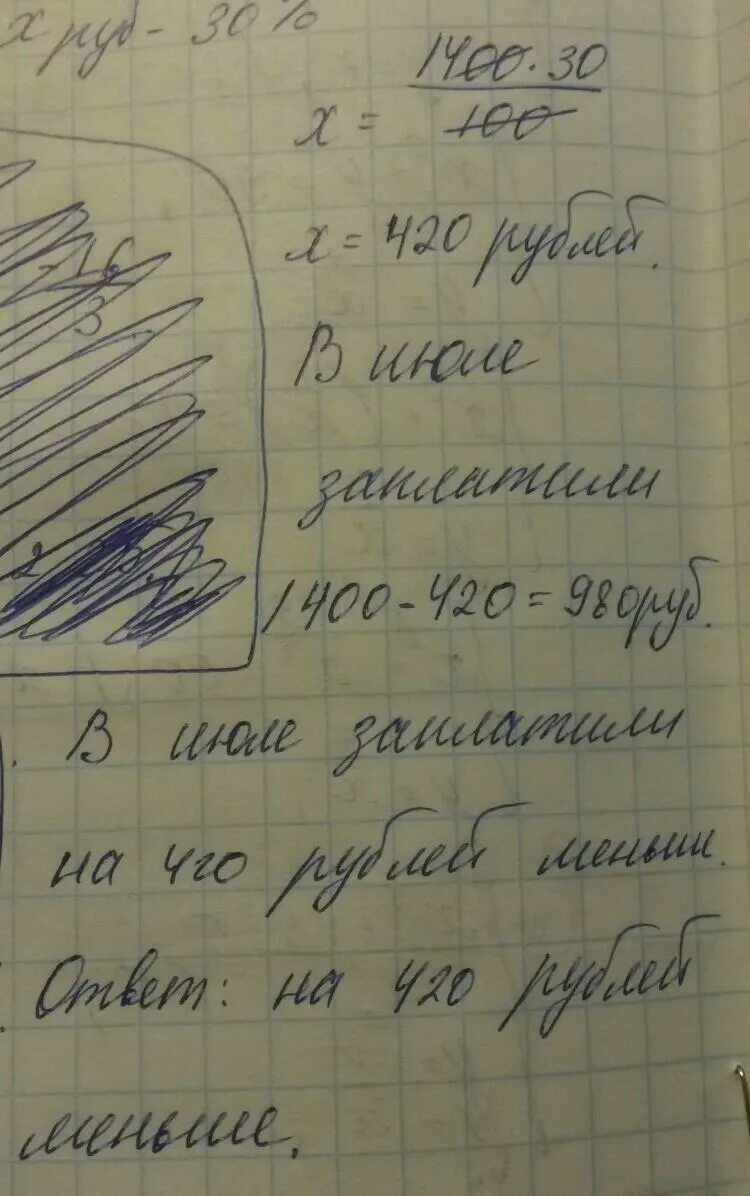 х руб - 30%
х = 1400·30
100
х = 420 рублей.
В июле
заплатили
1400-420=980руб.
. В июле заплатили
на 420 рублей меньше.
Ответ: на 420 рублей
меньше.
16
3
2